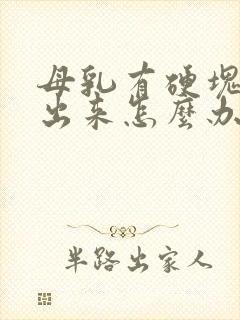 母乳有硬塊
出来怎麼办
半路出家人